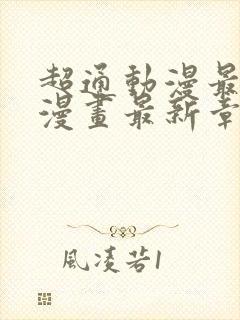 超通動漫最
漫畫最新章
風凌若1